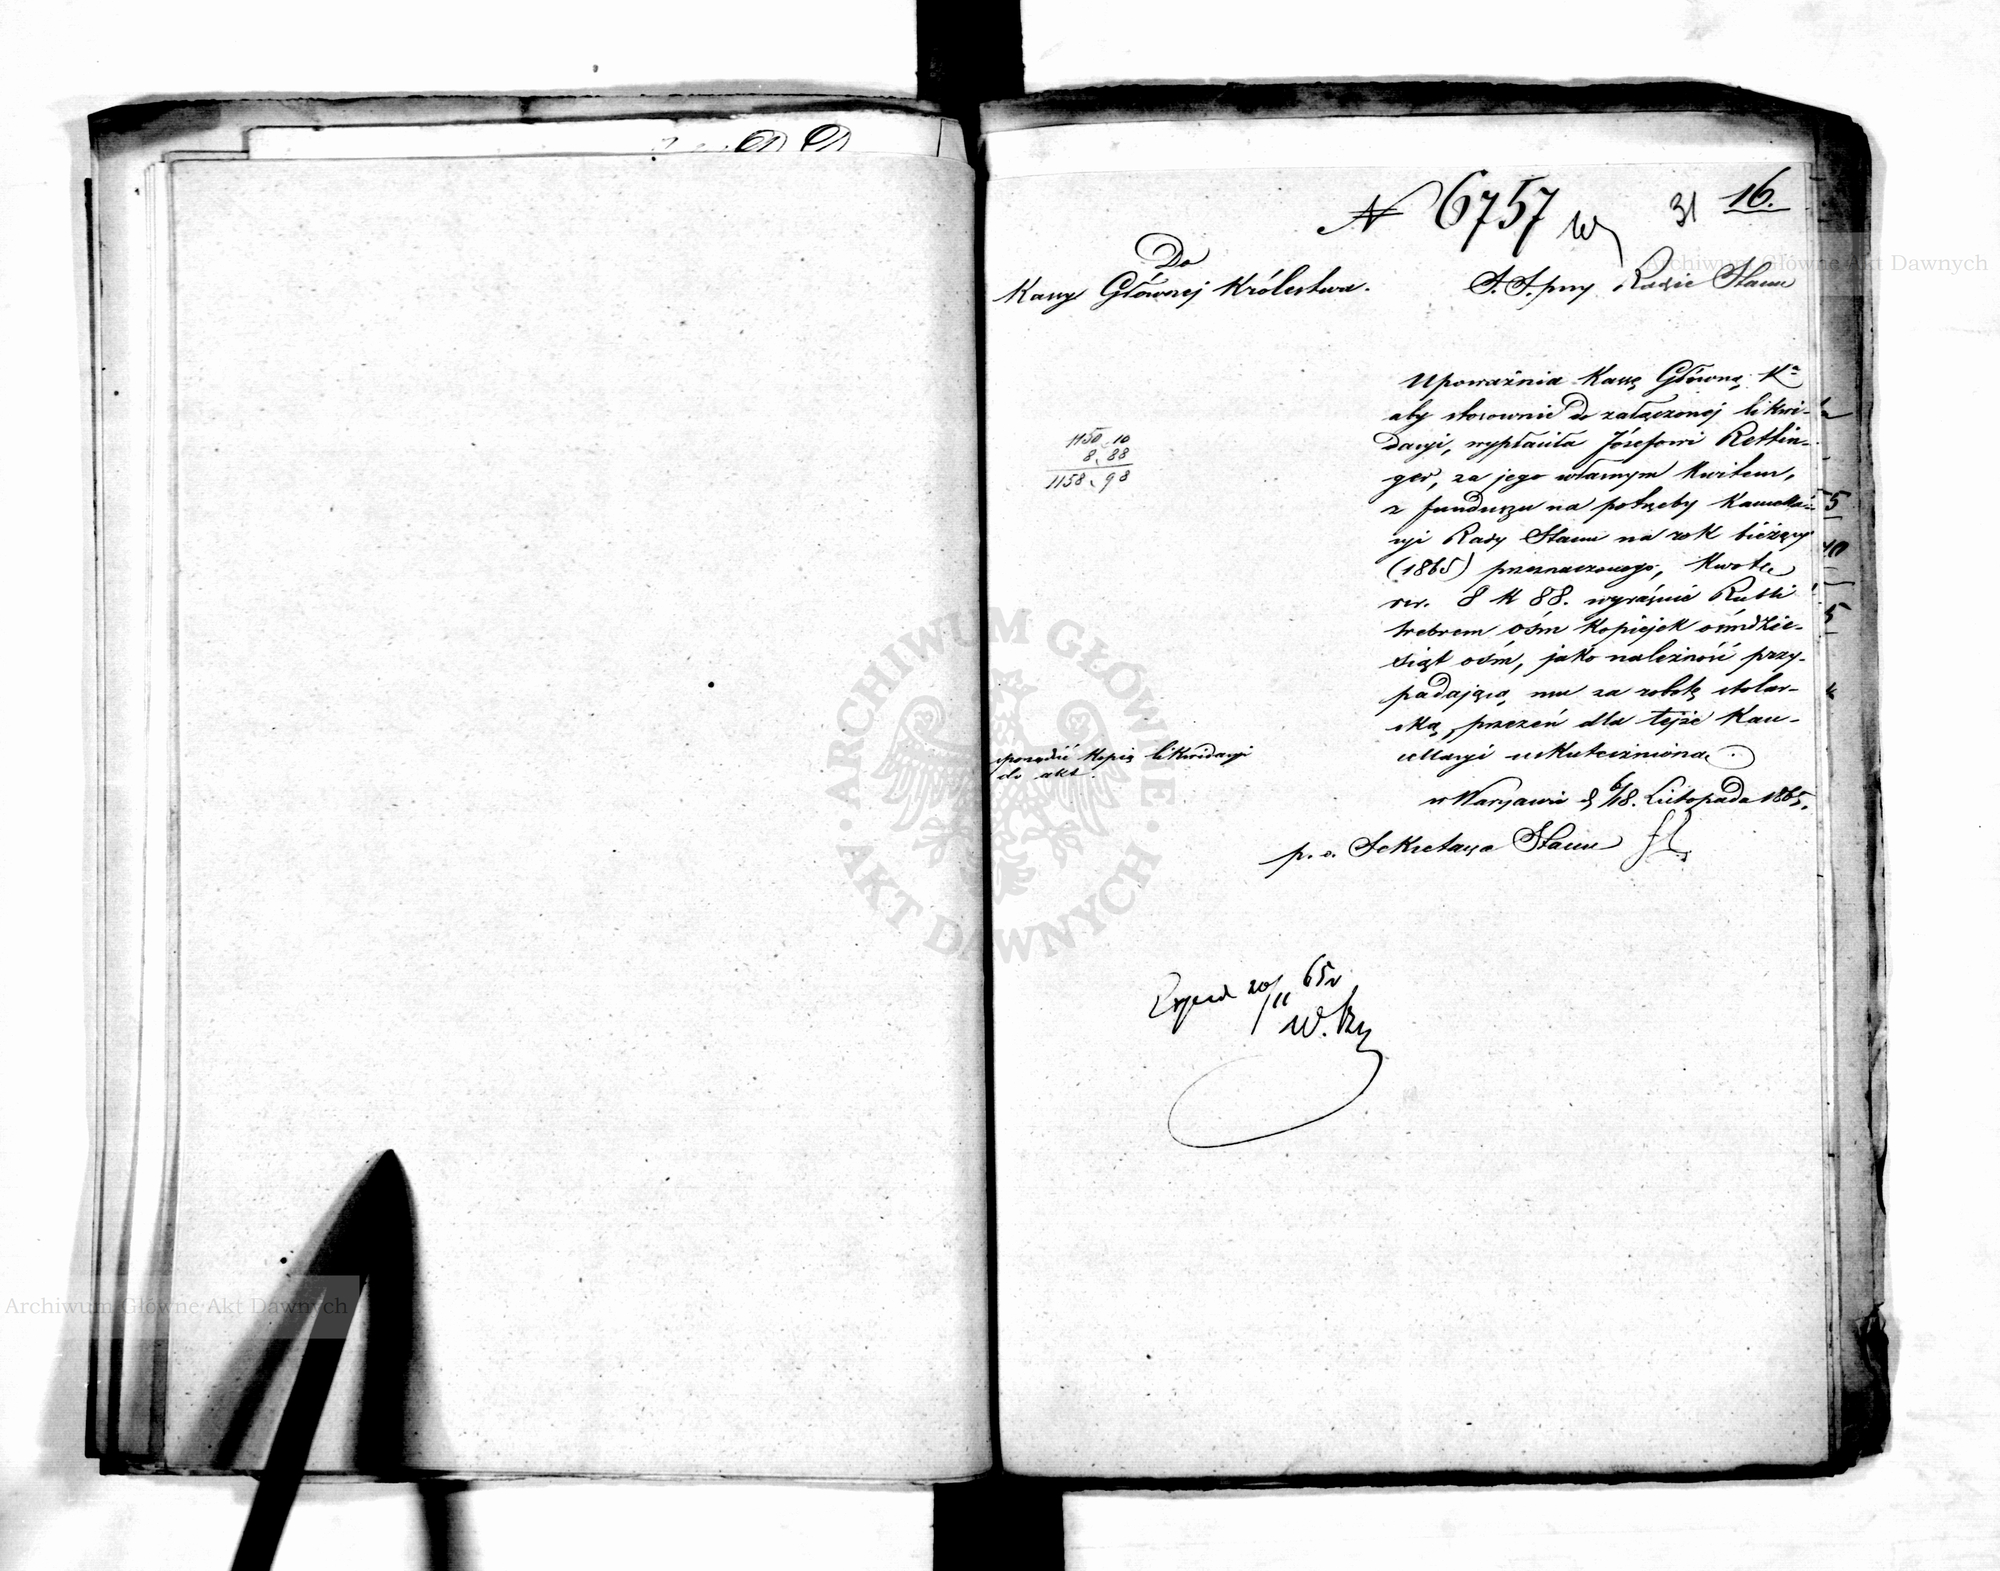 N 6757
31 16.
Do
Kassy Głównej Królestwa.
S. S. przy Radzie Stanu
Upoważnia Kassę Główną Kª
aby stosownie do załączonej likwi-
dacyi, wypłaciła Józefowi Rettin-
ger, za jego własnym kwitem,
z funduszu na potrzeby Kancella-
ryi Rady Stanu na rok bieżący
(1865) przeznaczonego, kwotę
rsr. 8 k 88. wyraźnie Rubli
srebrem ośm kopiejek ośmdzie-
siąt ośm, jako należność przy-
padającą mu za robotę stolar-
ską, przezeń dla tejże Kan-
cellaryi uskutecznioną.
1150, 10
8, 88
1158, 98
sporządzić kopię likwidacyi
do akt.
w Warszawie d 6/18. Listopada 1865.
p. o. Sekretarza Stanu
Exped 20/11 65 r
ARCHIWUM GŁÓWNE AKT DAWNYCH
Archiwum Główne Akt Dawnych
Archiwum Główne Akt Dawnych